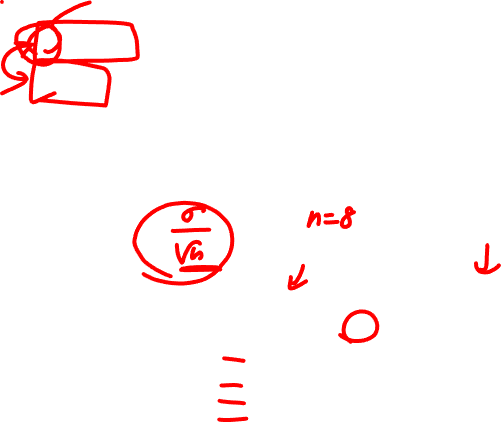 σ/√n n=8